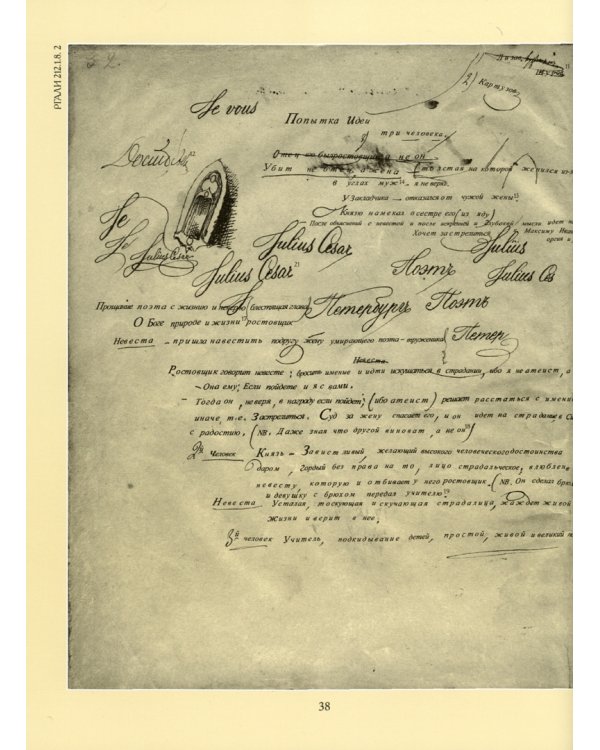 РГАЛИ 212.1.8. 2
32.
Je vous
Картузов
Попытка Идеи
три человека.
Отец не был ростовщик а не он
Убит не отец, а жена (толстая на которой женился из-
в услах муж 14 - я не верь.
У Закладчика - отказался от чужой жены 15
Князю намекал о сестре его (из яду)
После объяснений с невестой и после
Хочет застрелиться
Je
Je
Julius Cesar
Julius Cesar
Julius
Julius Cesar 21
Поэтъ
Julius Ces
Прощание поэта с жизнию и (блестящая глава)
Петербургъ
Поэтъ
О Боге природе и жизни 17 ростовщик
Петер
Невеста - пришла навестить подругу жену умирающего поэта - труженика
Невеста.
Ростовщик говорит невесте: бросить имение и идти искушаться в страдании, ибо я не атеист, а
- Она ему: Если пойдете и я с вами.
- Тогда он, неверя, в награду если пойдет, (ибо атеист) решает расстаться с имени
иначе, т.е. Застрелиться. Суд за жену спасает его, и он идет на страдание в С
с радостию. (NB. Даже зная что другой виноват, а не он 18)
2й Человек (Князь - Завистливый, желающий высокого человеческого достоинства
даром, гордый без права на то, лицо страдальческое; влюблен в
невесту которую и отбивает у него ростовщик. (NB. Он сделал брюх
и девушку с брюхом передал учителю. 19
Невеста Усталая, тоскующая и скучающая страдалица, жаждет живой
жизни и верит в нее.
3й человек Учитель, подкидывание детей, простой, живой и великой
38